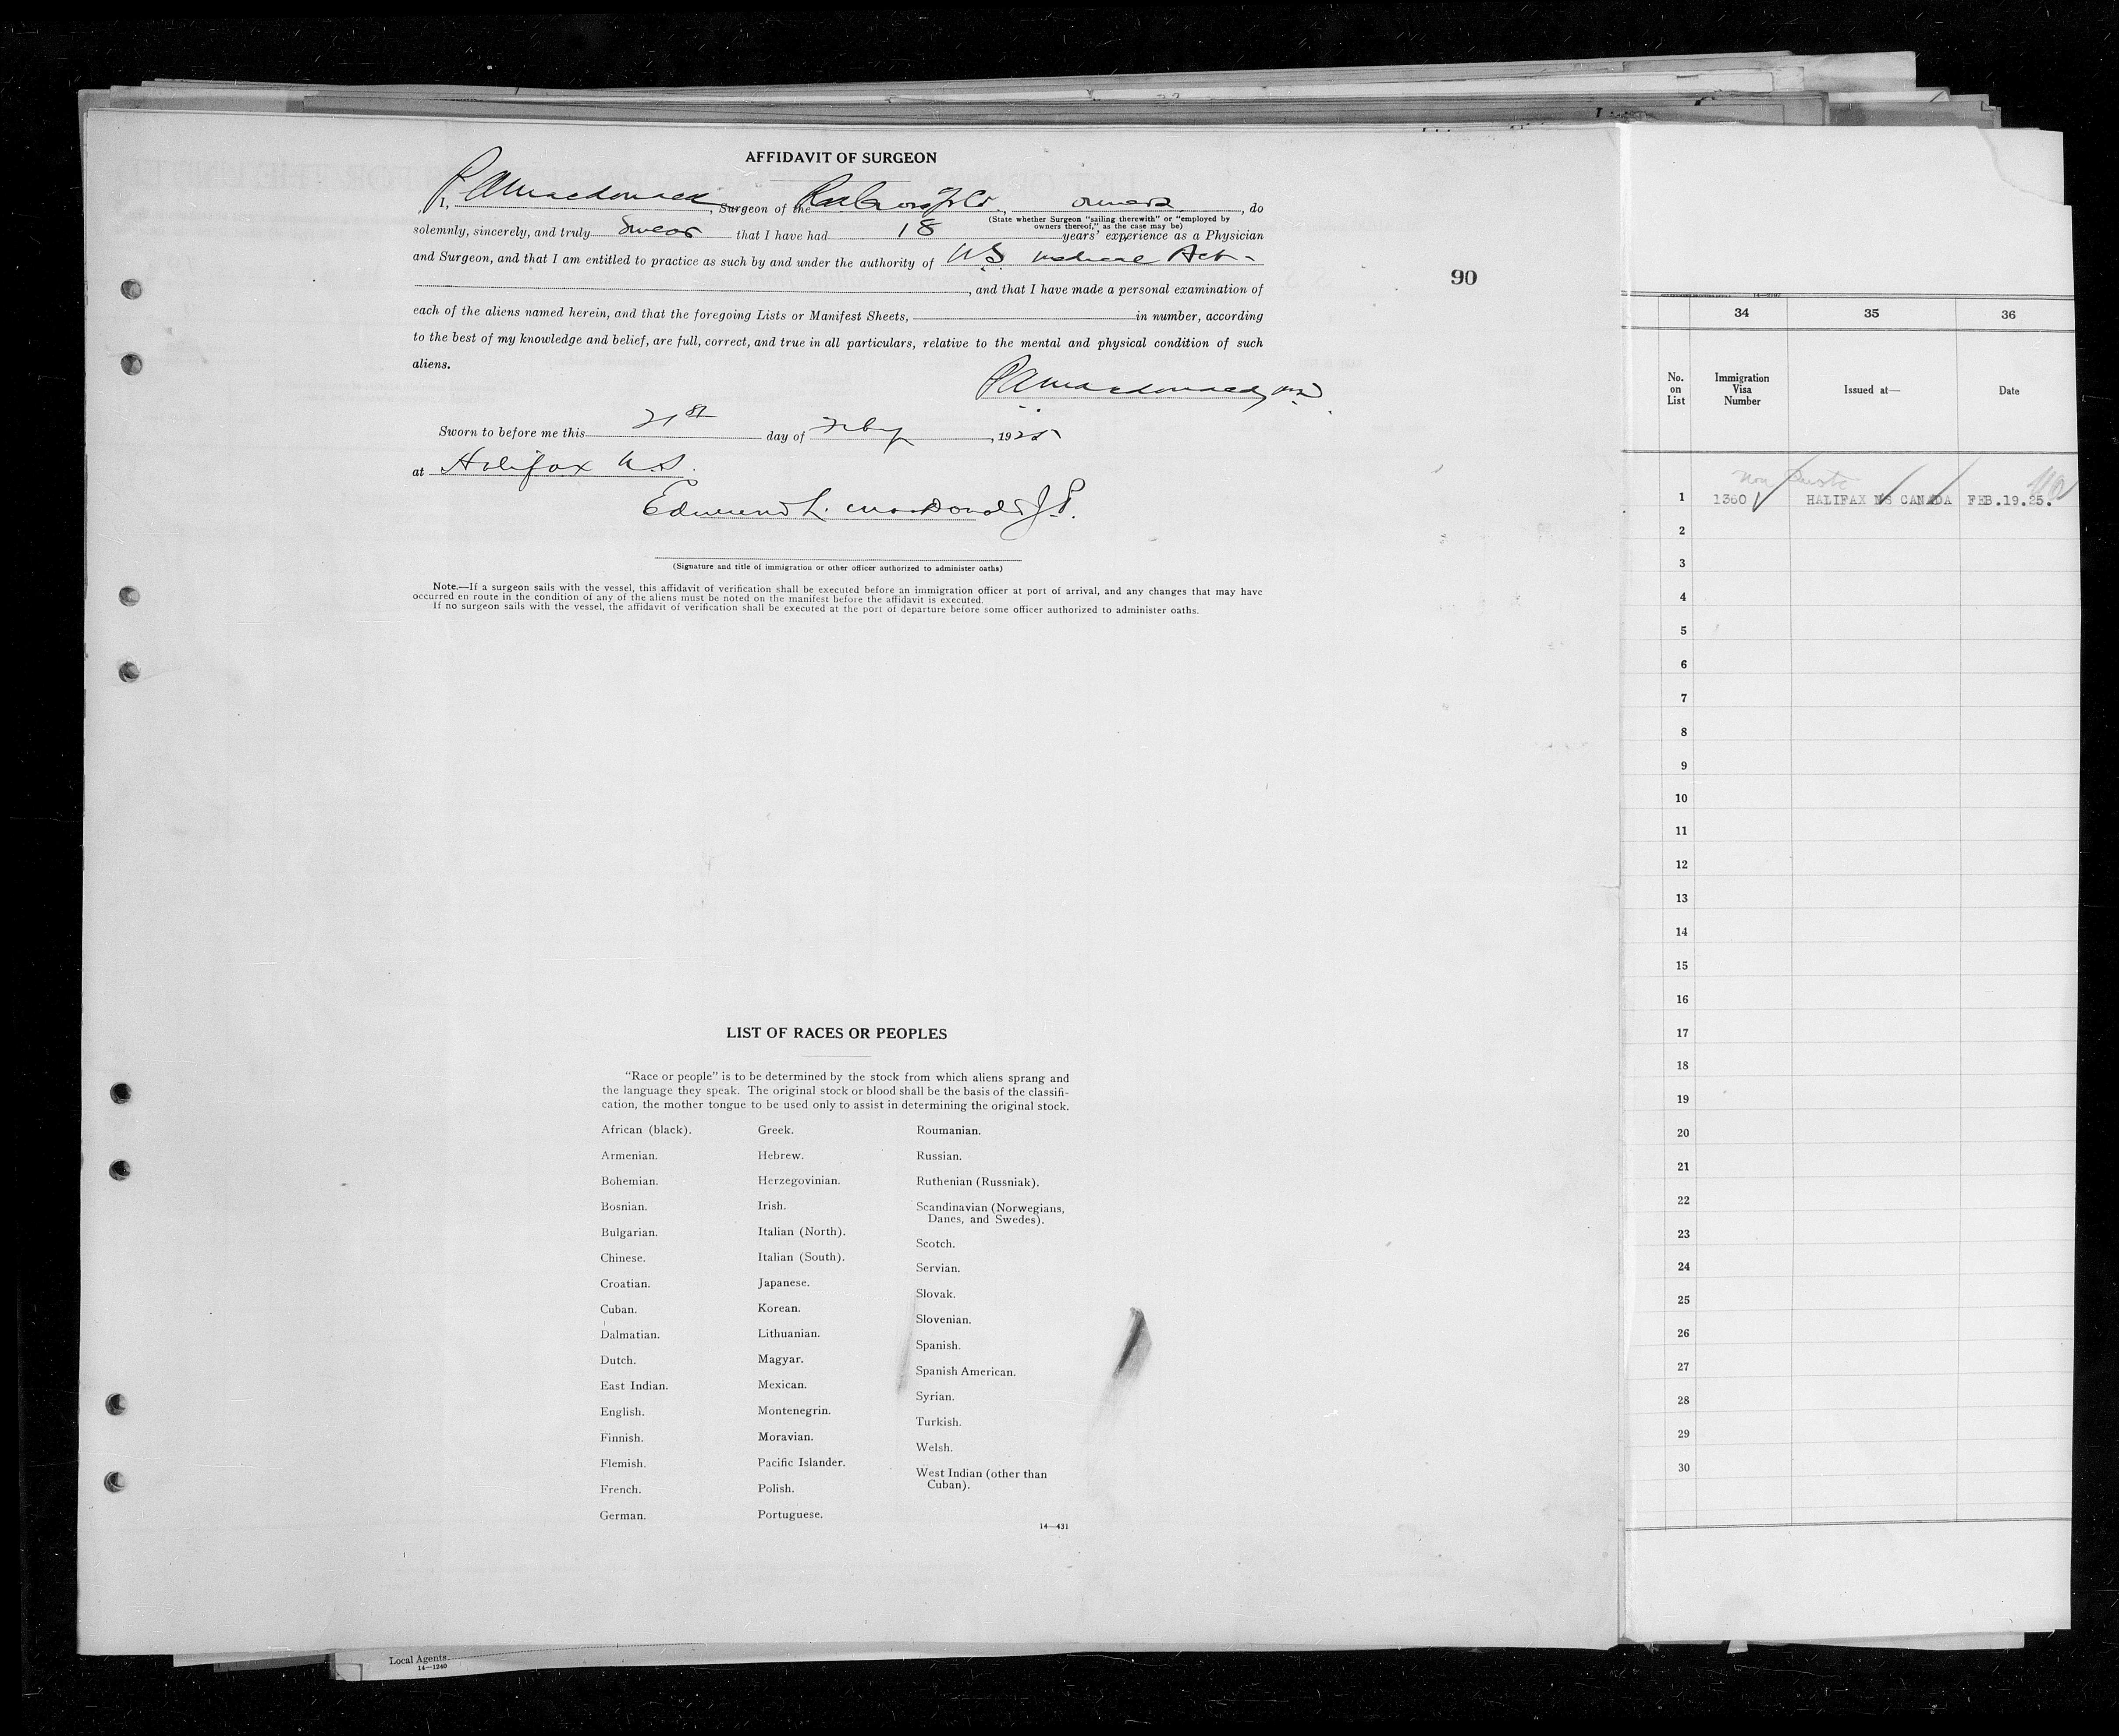 AFFIDAVIT OF SURGEON
I, P A Macdonald, Surgeon of the Red Cross, owners, do
(State whether Surgeon "sailing therewith" or "employed by
owners thereof," as the case may be)
solemnly, sincerely, and truly swear that I have had 18 years' experience as a Physician
and Surgeon, and that I am entitled to practice as such by and under the authority of N.S. Medical Act
, and that I have made a personal examination of
each of the aliens named herein, and that the foregoing Lists or Manifest Sheets, in number, according
to the best of my knowledge and belief, are full, correct, and true in all particulars, relative to the mental and physical condition of such
aliens.
P A Macdonald, MD
Sworn to before me this 21st day of Feby, 1925
at Halifax N.S.
Edmund L. MacDonald J.P.
(Signature and title of immigration or other officer authorized to administer oaths)
Note.—If a surgeon sails with the vessel, this affidavit of verification shall be executed before an immigration officer at port of arrival, and any changes that may have
occurred en route in the condition of any of the aliens must be noted on the manifest before the affidavit is executed.
If no surgeon sails with the vessel, the affidavit of verification shall be executed at the port of departure before some officer authorized to administer oaths.
90
LIST OF RACES OR PEOPLES
"Race or people" is to be determined by the stock from which aliens sprang and
the language they speak. The original stock or blood shall be the basis of the classifi-
cation, the mother tongue to be used only to assist in determining the original stock.
African (black).
Armenian.
Bohemian.
Bosnian.
Bulgarian.
Chinese.
Croatian.
Cuban.
Dalmatian.
Dutch.
East Indian.
English.
Finnish.
Flemish.
French.
German.
Greek.
Hebrew.
Herzegovinian.
Irish.
Italian (North).
Italian (South).
Japanese.
Korean.
Lithuanian.
Magyar.
Mexican.
Montenegrin.
Moravian.
Pacific Islander.
Polish.
Portuguese.
Roumanian.
Russian.
Ruthenian (Russniak).
Scandinavian (Norwegians,
Danes, and Swedes).
Scotch.
Servian.
Slovak.
Slovenian.
Spanish.
Spanish American.
Syrian.
Turkish.
Welsh.
West Indian (other than
Cuban).
14—431
Local Agents
14—1240
34 35 36
No.
on
List
Immigration
Visa
Number
Issued at—
Date
1 1360 HALIFAX NS CANADA FEB.19.25.
2
3
4
5
6
7
8
9
10
11
12
13
14
15
16
17
18
19
20
21
22
23
24
25
26
27
28
29
30